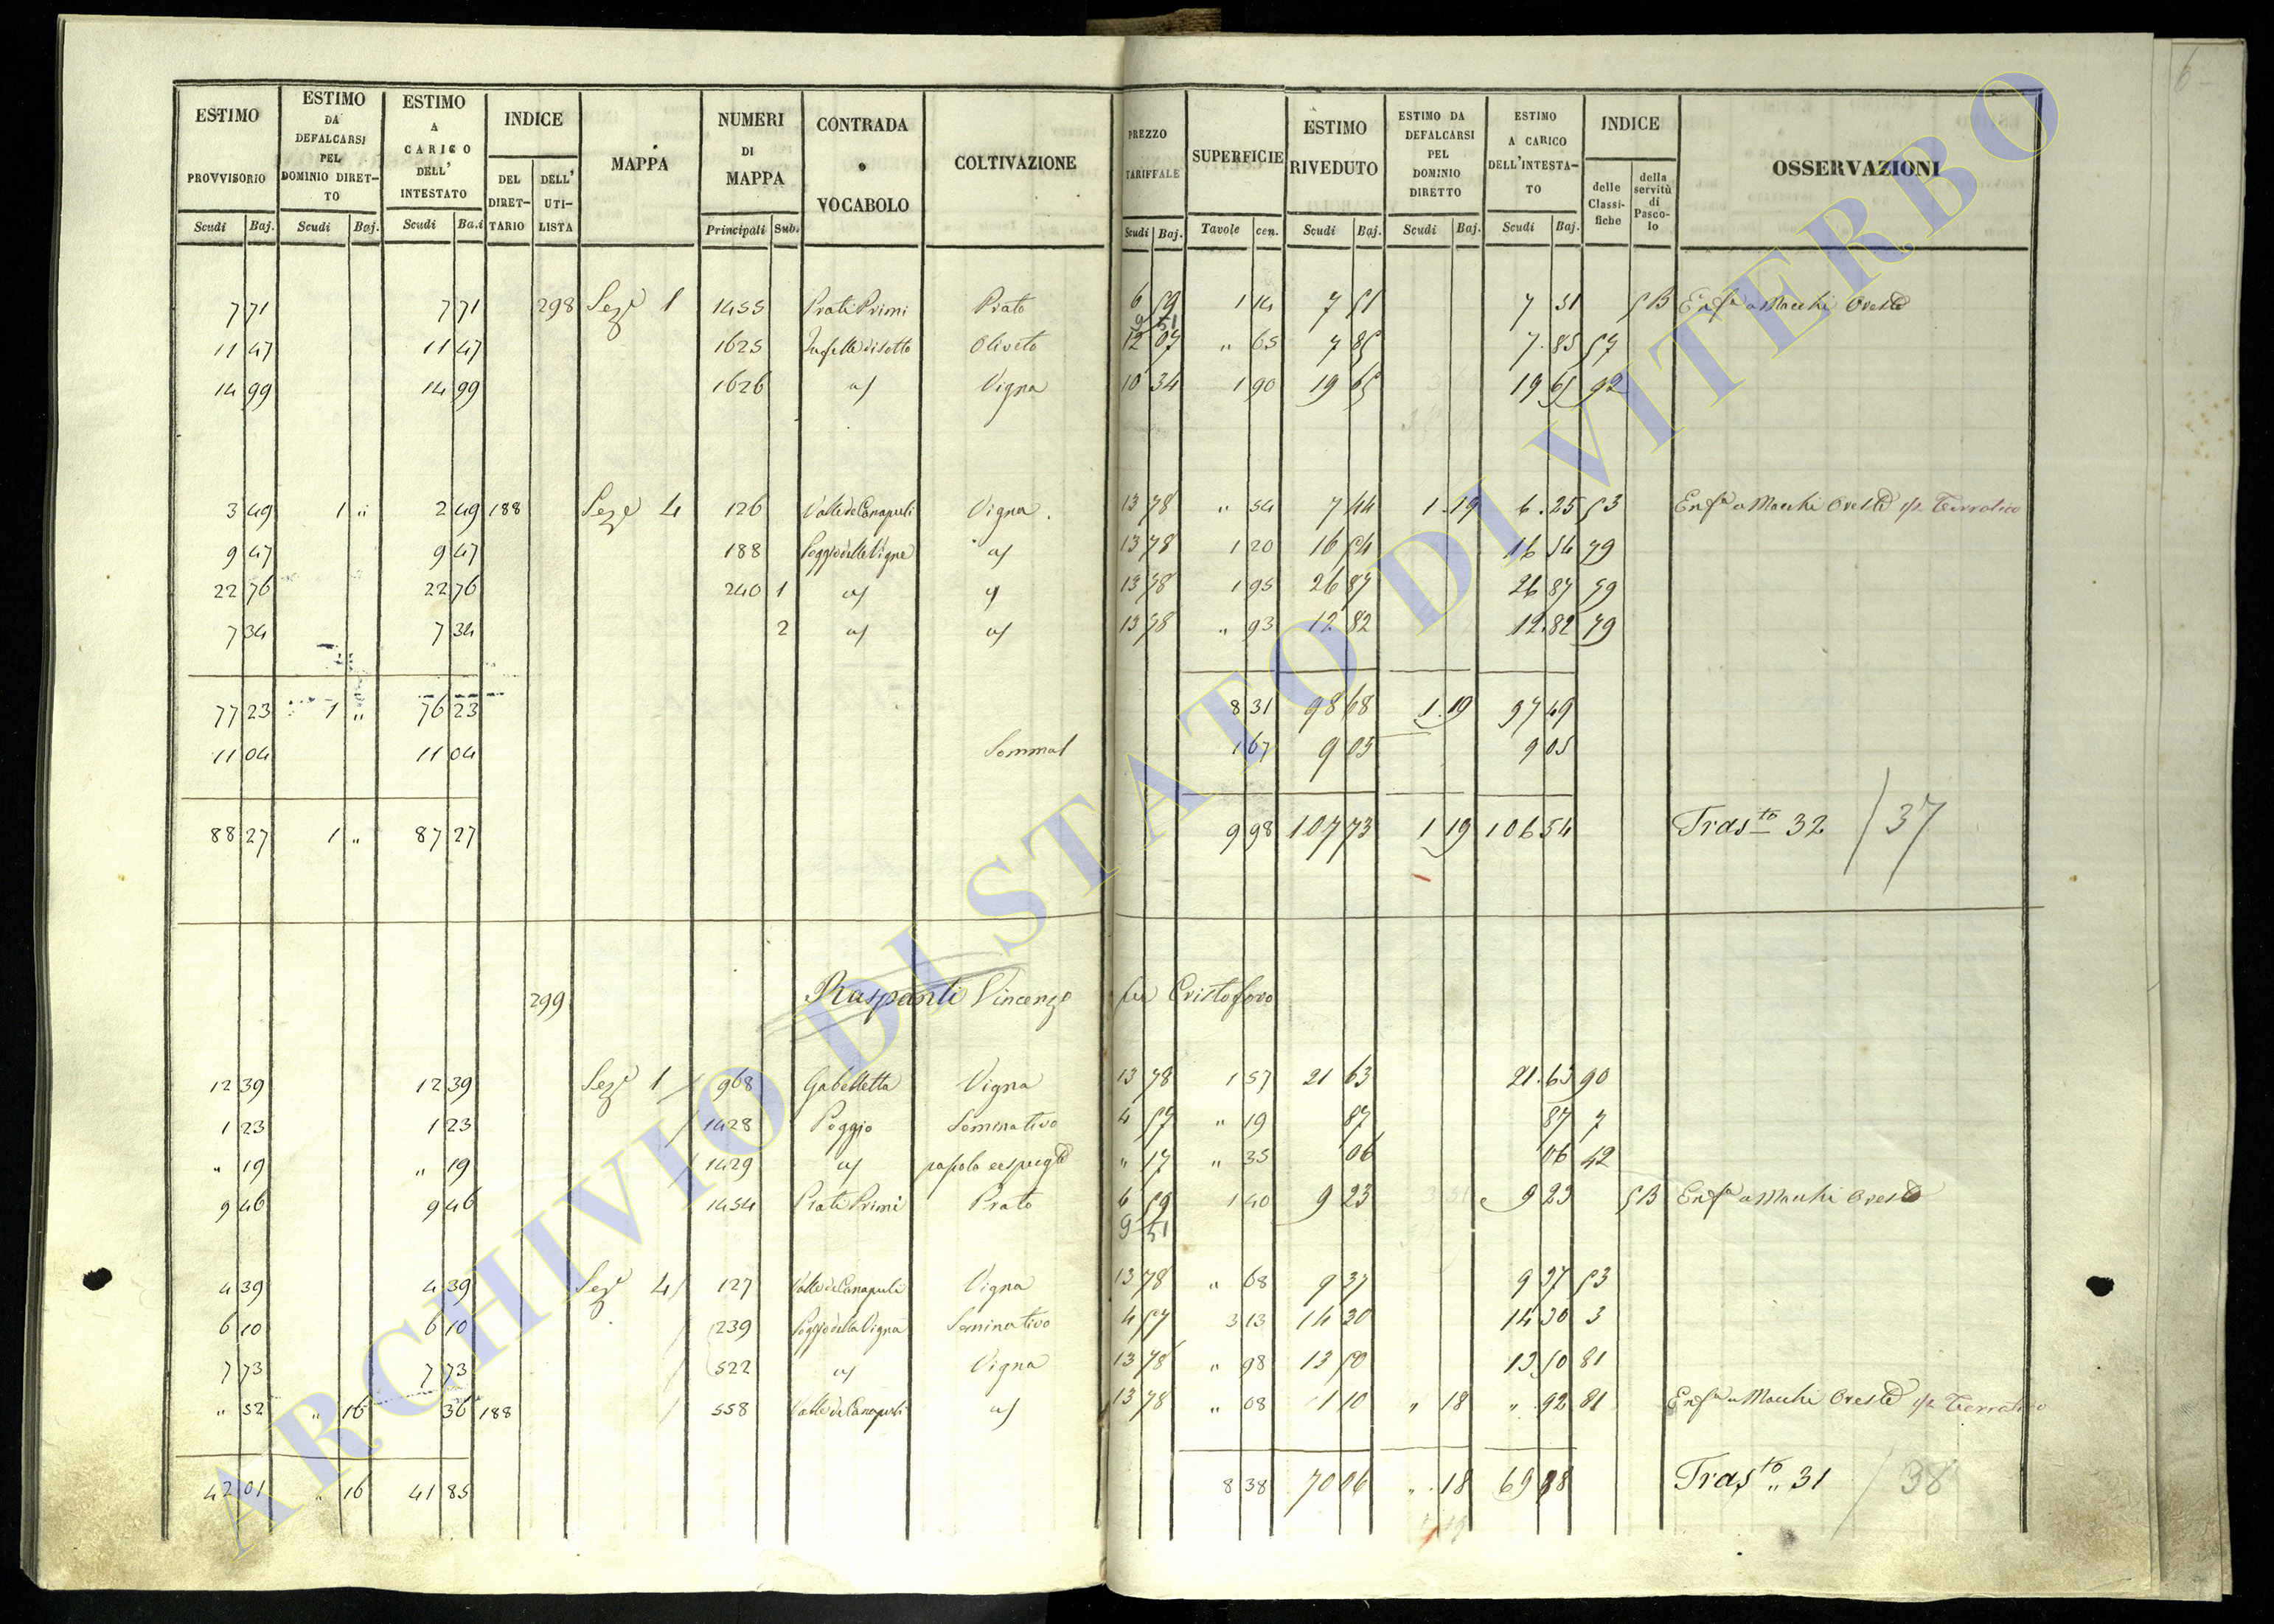 ESTIMO PROVVISORIO Scudi Baj. | ESTIMO DA DEFALCARSI PEL DOMINIO DIRET-TO Scudi Baj. | ESTIMO A CARICO DELL' INTESTATO Scudi Ba.i | INDICE DEL DIRET-TARIO DELL' UTI-LISTA | MAPPA | NUMERI DI MAPPA Principali Sub. | CONTRADA o VOCABOLO | COLTIVAZIONE | PREZZO TARIFFALE Scudi Baj. | SUPERFICIE Tavole cen. | ESTIMO RIVEDUTO Scudi Baj. | ESTIMO DA DEFALCARSI PEL DOMINIO DIRETTO Scudi Baj. | ESTIMO A CARICO DELL'INTESTA-TO Scudi Baj. | INDICE delle Classi-fiche della servitù di Pasco-lo | OSSERVAZIONI
7 71 7 71 298 Sez.e 1 1455 Prati Primi Prato 6 59 1 14 7 51 7 51 5B Enf.a a Macchi Oreste
9 51
11 47 11 47 1625 di sotto Oliveto 12 07 " 65 7 85 7.85 57
14 99 14 99 1626 a/ Vigna 10 34 1 90 19 65 19 65 92
3 49 1 " 2 49 188 Sez.e 4 126 Valle de Canapuli Vigna 13 78 " 54 7 44 1.19 6.25 53 Enf.a a Macchi Oreste Terratico
9 47 9 47 188 Poggio delle Vigne a/ 13 78 1 20 16 54 16 54 79
22 76 22 76 240 1 a/ a/ 13 78 1 95 26 87 26 87 79
7 34 7 34 2 a/ a/ 13 78 " 93 12 82 12.82 79
77 23 1 " 76 23 8 31 98 68 1.19 97 49
11 04 11 04 1 67 9 05 9 05
88 27 1 " 87 27 9 98 107 73 1 19 106 54 Tras.to 32 / 37
299 Raspanti Vincenzo fu Cristoforo
12 39 12 39 Sez.e 1 / 968 Gabelletta Vigna 13 78 1 57 21 63 21.63 90
1 23 1 23 / 1428 Poggio Seminativo 4 57 " 19 87 87 7
" 19 " 19 / 1429 a/ 17 " 35 06 06 42
9 46 9 46 1454 Prati Primi Prato 6 59 1 40 9 23 9 23 5B Enf.a a Macchi Oreste
9 51
4 39 4 39 Sez.e 4 / 127 Valle de Canapule Vigna 13 78 " 68 9 37 9 37 53
6 10 6 10 / 239 Poggio della Vigna Seminativo 4 57 3 13 14 30 14 30 3
7 73 7 73 / 522 a/ Vigna 13 78 " 98 13 50 13 50 81
" 52 " 16 36 188 / 558 Valle de Canapuli a/ 13 78 " 08 1 10 " 18 " 92 81 Enf.a a Macchi Oreste Terratico
42 01 " 16 41 85 8 38 70 06 " 18 69 88 Tras.to 31 / 38
ARCHIVIO DI STATO DI VITERBO